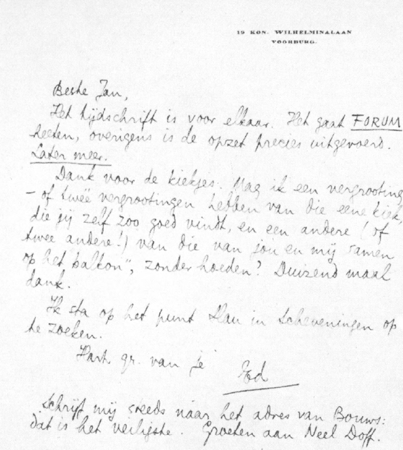 19 KON. WILHELMINALAAN
VOORBURG.
Beste Jan,
Het tijdschrift is voor elkaar. Het gaat FORUM
heeten, overigens is de opzet precies uitgevoerd.
Later meer.
Dank voor de kiekjes. Mag ik een vergrooting
– of twéé vergrootingen hebben van die eene kiek,
die jij zelf zoo goed vindt, en een andere (of
twee andere!) van die van jou en mij samen
op het balkon", zonder hoeden? Duizend maal
dank.
Ik sta op het punt Slau in Scheveningen op
te zoeken.
Hart. gr. van je
Ed
Schrijf mij steeds naar het adres van Bouws:
dat is het veiligste. Groeten aan Neel Doff.